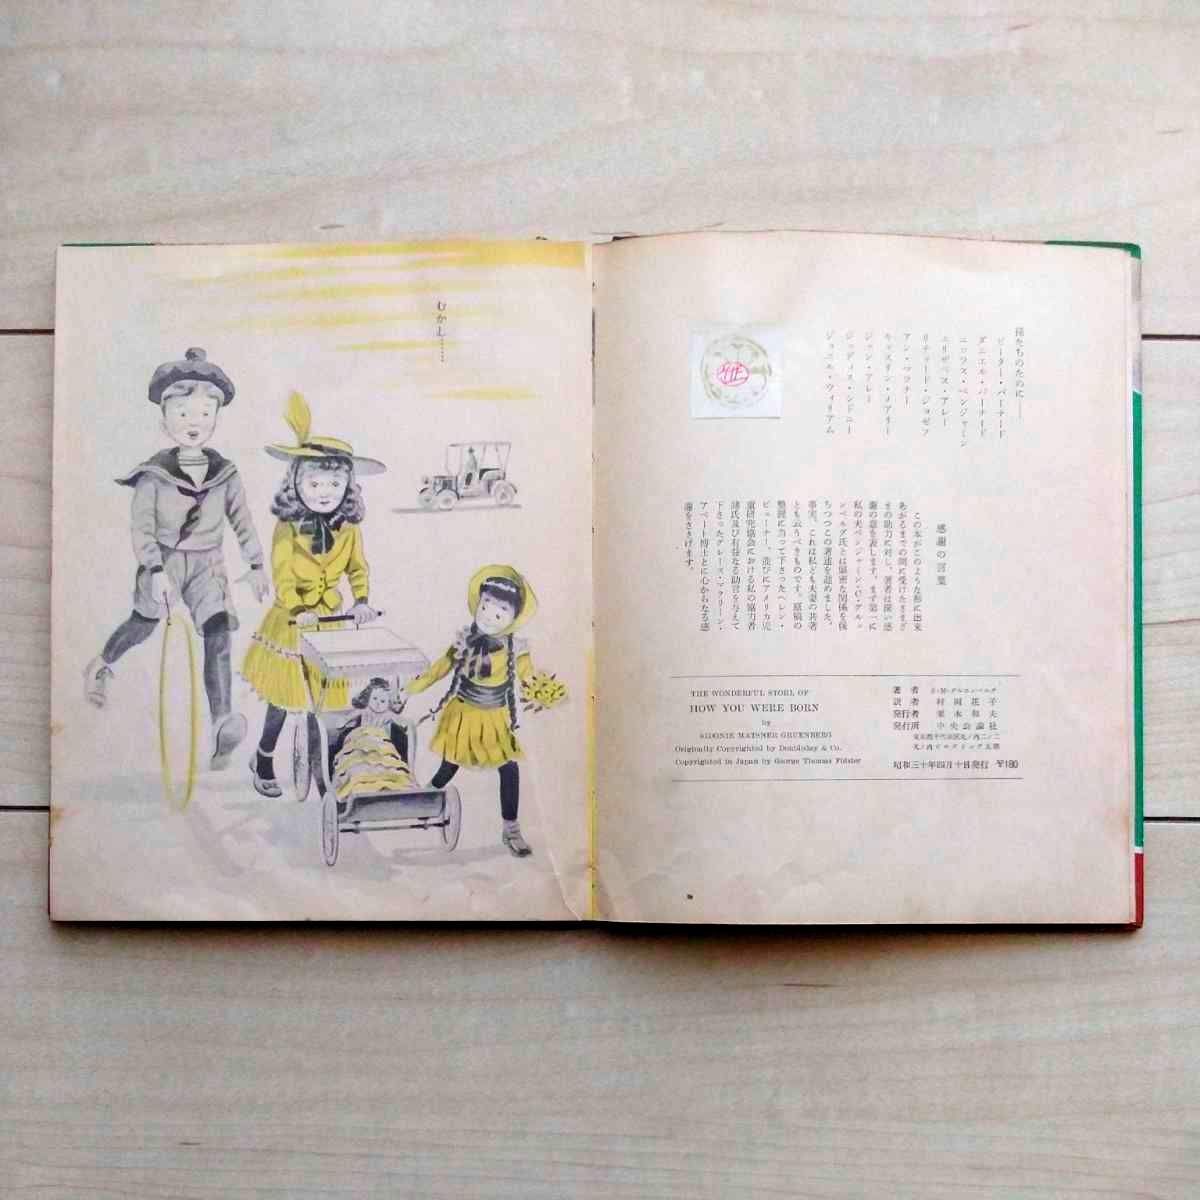 むかし……
孫たちのために――
ピーター・バーナード
ダニエル・バーナード
ニコラス・ベンジャミン
エリザベス・アレー
リチャード・ジョゼフ
アン・ワグナー
キャスリン・メアリー
ジョン・アレー
ジュディス・シドニー
ジョエル・ウィリアム
感謝の言葉
この本がこのような形に出来
あがるまでの間に受けたさまざ
まの助力に対し、著者は深い感
謝の意を表します。まず第一に
私の夫ベンジャミン・C・グルエ
ンベルグ氏とは緊密な関係を保
ちつつこの著述を進めました。
事実、これは私ども夫妻の共著
とも云うべきものです。原稿の
整理に当って下さったヘレン・
ピューナー、並びにアメリカ児
童研究協会における私の協力者
諸氏及び有益なる助言を与えて
下さったグレース・マクリーン・
アベート博士とに心からなる感
謝をささげます。
THE WONDERFUL STORL OF
HOW YOU WERE BORN
by
SIDONIE MATSNER GRUENBERG
Originally Copyrighted by Doubleday & Co.
Copyrighted in Japan by George Thomas Folster
著者 S・M・グルエンベルグ
訳者 村岡花子
発行者 栗本和夫
発行所 中央公論社
東京都千代田区丸ノ内二ノ二
丸ノ内ビルディング五階
昭和三十年四月十日発行 ¥180